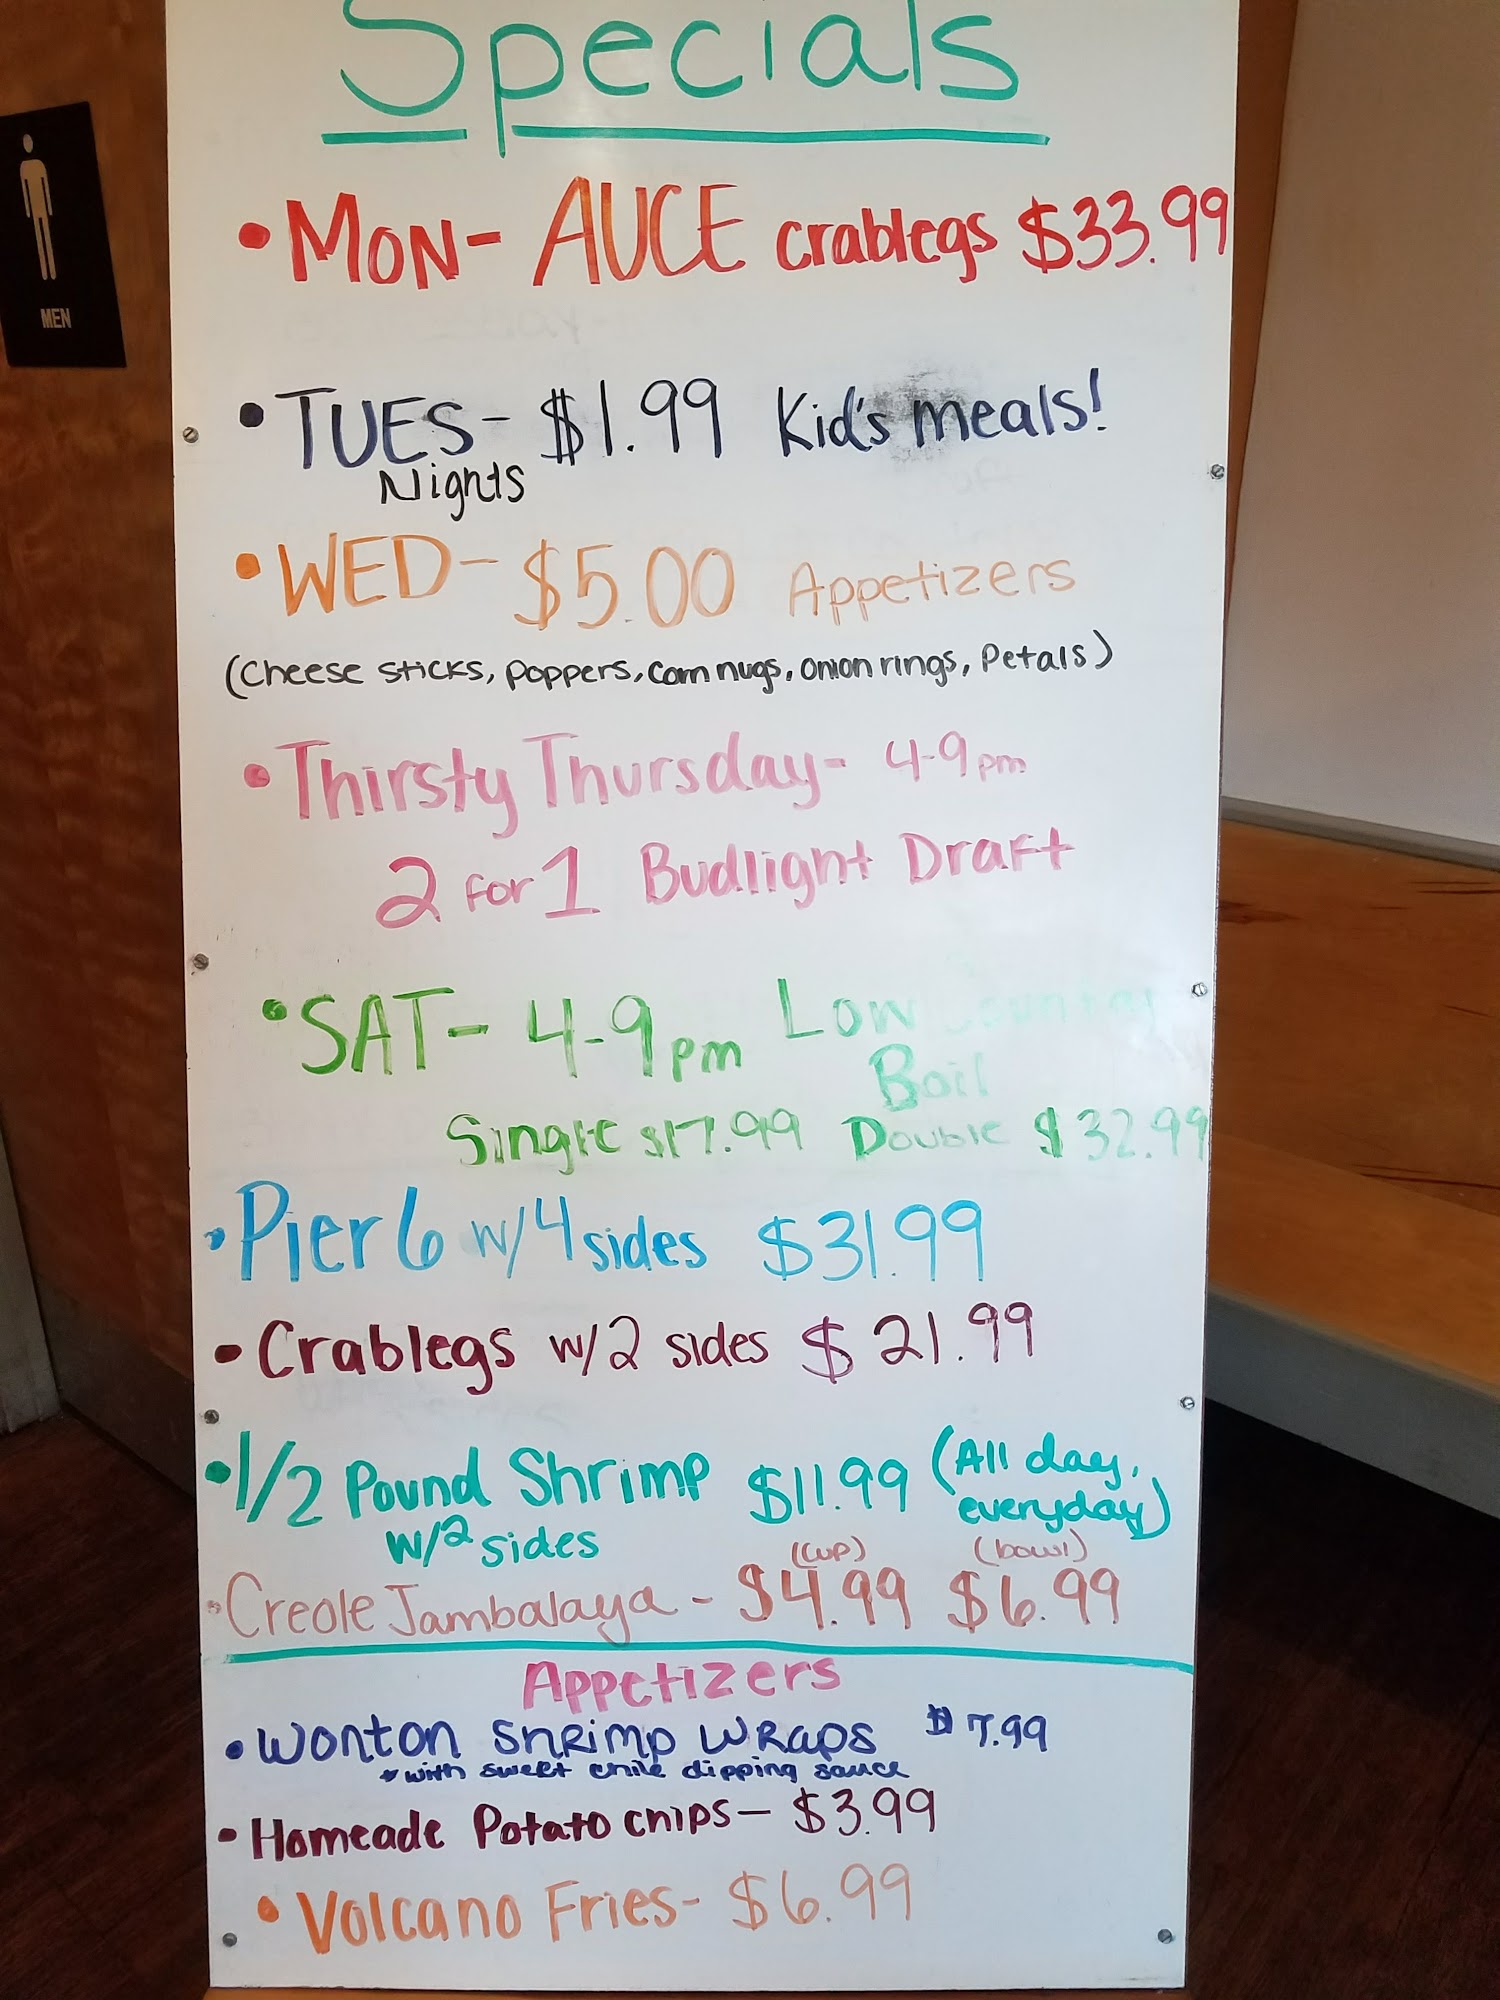 Specials
MEN
• MON- AUCE crablegs $33.99
• TUES- $1.99 Kid's meals!
Nights
• WED- $5.00 Appetizers
(cheese sticks, poppers, corn nugs, onion rings, Petals)
• Thirsty Thursday- 4-9pm
2 for 1 Budlight Draft
• SAT- 4-9pm Low Country
Boil
Single $17.99 Double $32.99
• Pier 6 w/4 sides $31.99
• Crablegs w/2 sides $21.99
• 1/2 Pound Shrimp $11.99 (All day,
everyday)
w/2 sides
(cup) (bowl)
• Creole Jambalaya - $4.99 $6.99
Appetizers
• Wonton Shrimp Wraps $7.99
* with sweet chile dipping sauce
• Homeade Potato chips- $3.99
• Volcano Fries- $6.99